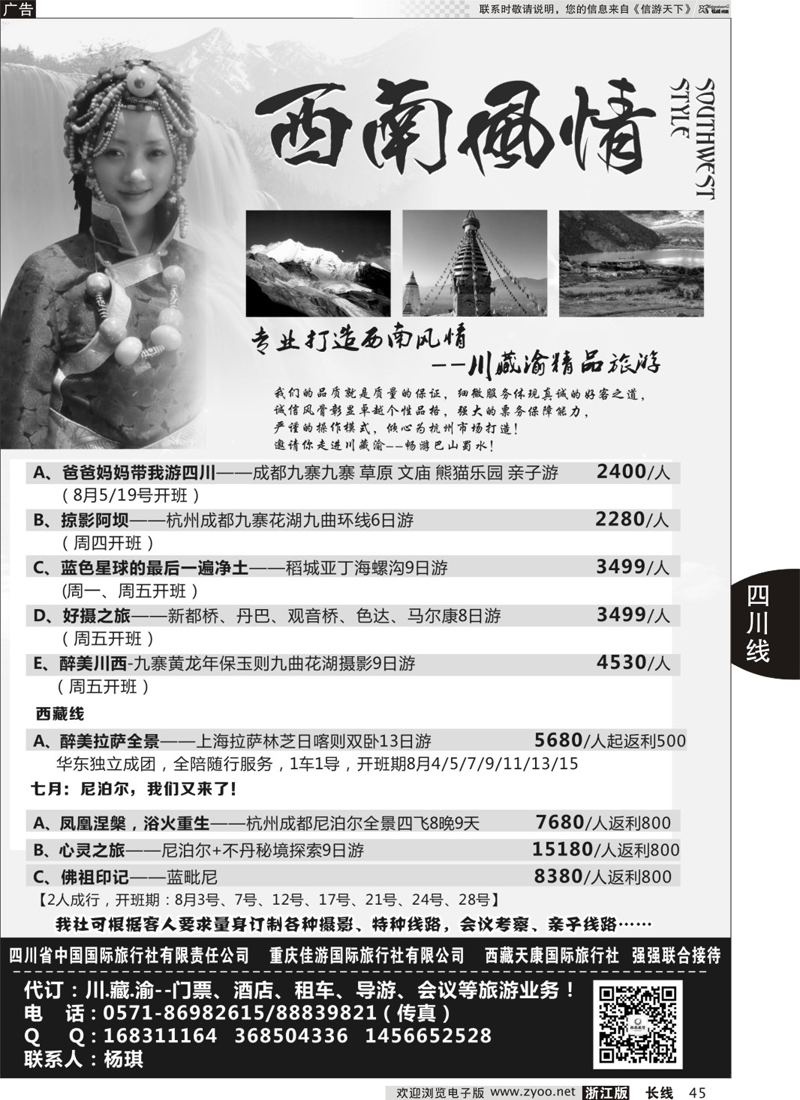 广告
联系时敬请说明，您的信息来自《信游天下》
西南风情
SOUTHWEST
STYLE
专业打造西南风情
--川藏渝精品旅游
我们的品质就是质量的保证，细微服务体现真诚的好客之道，
诚信风骨彰显卓越个性品格，强大的票务保障能力，
严谨的操作模式，倾心为杭州市场打造！
邀请你走进川藏渝--畅游巴山蜀水！
A、爸爸妈妈带我游四川——成都九寨九寨 草原 文庙 熊猫乐园 亲子游 2400/人
（8月5/19号开班）
B、掠影阿坝——杭州成都九寨花湖九曲环线6日游 2280/人
（周四开班）
C、蓝色星球的最后一遍净土——稻城亚丁海螺沟9日游 3499/人
(周一、周五开班）
D、好摄之旅——新都桥、丹巴、观音桥、色达、马尔康8日游 3499/人
（周五开班）
E、醉美川西-九寨黄龙年保玉则九曲花湖摄影9日游 4530/人
（周五开班）
西藏线
A、醉美拉萨全景——上海拉萨林芝日喀则双卧13日游 5680/人起返利500
华东独立成团，全陪随行服务，1车1导，开班期8月4/5/7/9/11/13/15
七月：尼泊尔，我们又来了！
A、凤凰涅槃，浴火重生——杭州成都尼泊尔全景四飞8晚9天 7680/人返利800
B、心灵之旅——尼泊尔+不丹秘境探索9日游 15180/人返利800
C、佛祖印记——蓝毗尼 8380/人返利800
【2人成行，开班期：8月3号、7号、12号、17号、21号、24号、28号】
我社可根据客人要求量身订制各种摄影、特种线路，会议考察、亲子线路……
四川省中国国际旅行社有限责任公司 重庆佳游国际旅行社有限公司 西藏天康国际旅行社 强强联合接待
代订：川.藏.渝--门票、酒店、租车、导游、会议等旅游业务！
电 话：0571-86982615/88839821（传真）
Q Q：168311164 368504336 1456652528
联系人：杨琪
四川线
欢迎浏览电子版 www.zyoo.net 浙江版 长线 45